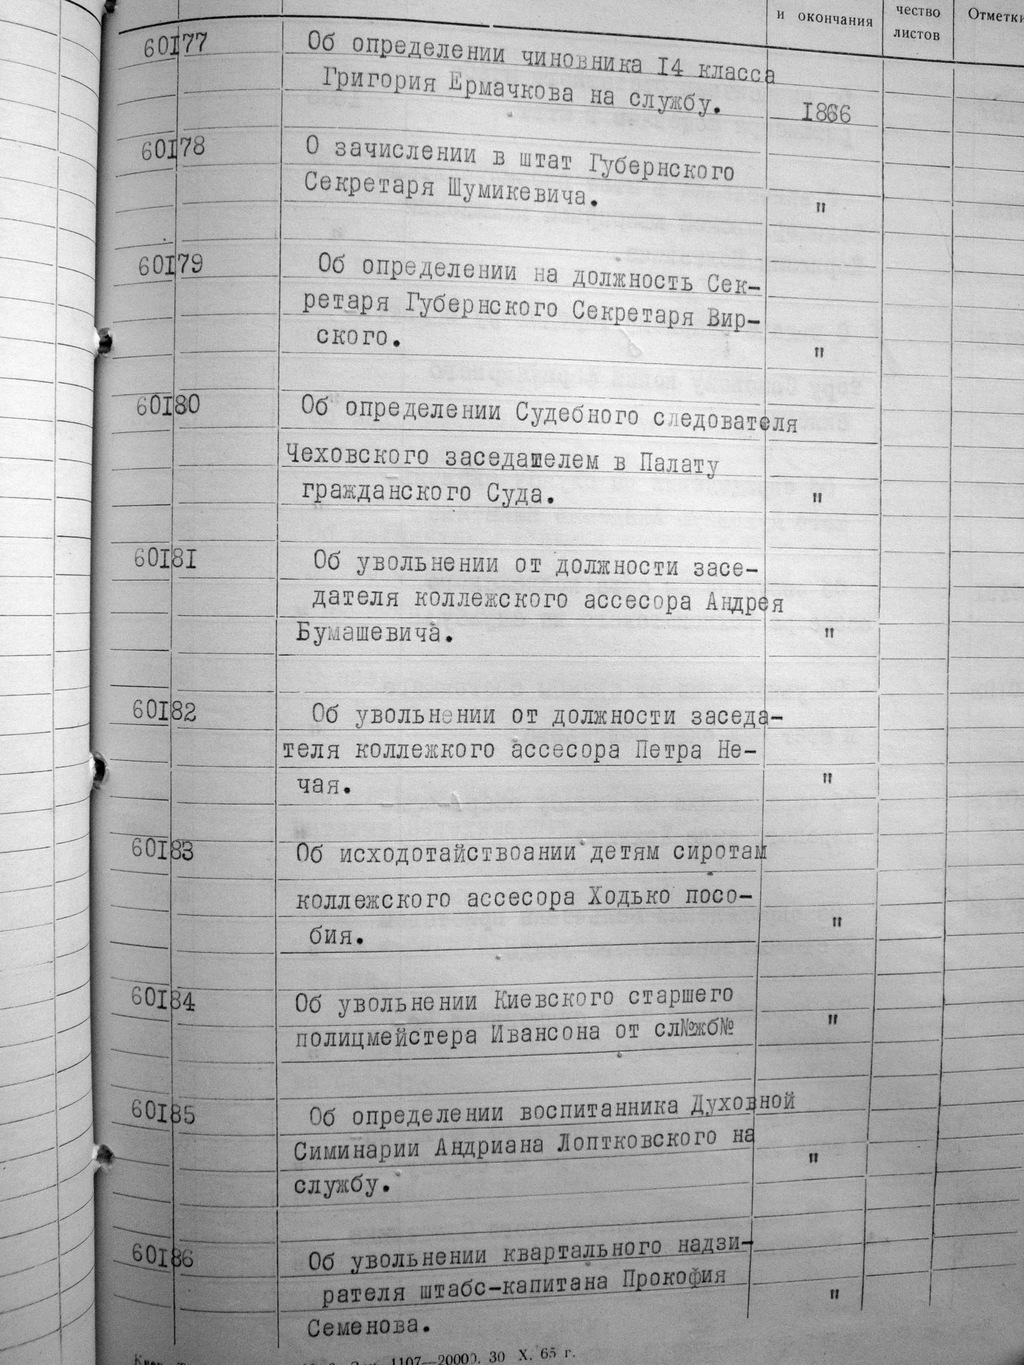 и окончания
чество
листов
Отметки
60177 Об определении чиновника 14 класса
Григория Ермачкова на службу. 1866
60178 О зачислении в штат Губернского
Секретаря Шумикевича. "
60179 Об определении на должность Сек-
ретаря Губернского Секретаря Вир-
ского. "
60180 Об определении Судебного следователя
Чеховского заседателем в Палату
гражданского Суда. "
60181 Об увольнении от должности засе-
дателя коллежского ассесора Андрея
Бумашевича. "
60182 Об увольнении от должности заседа-
теля коллежкого ассесора Петра Не-
чая. "
60183 Об исходотайствоании детям сиротам
коллежского ассесора Ходько посо-
бия. "
60184 Об увольнении Киевского старшего "
полицмейстера Ивансона от сл№жб№
60185 Об определении воспитанника Духовной
Симинарии Андриана Лоптковского на
службу. "
60186 Об увольнении квартального надзи-
рателя штабс-капитана Прокофия "
Семенова.
1107—20000. 30 X. 65 г.